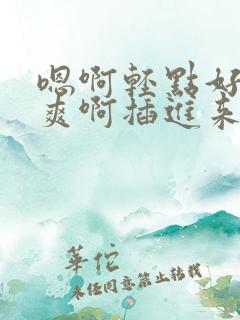 嗯啊輕點好
爽啊插進来
華佗
未经同意禁止转载